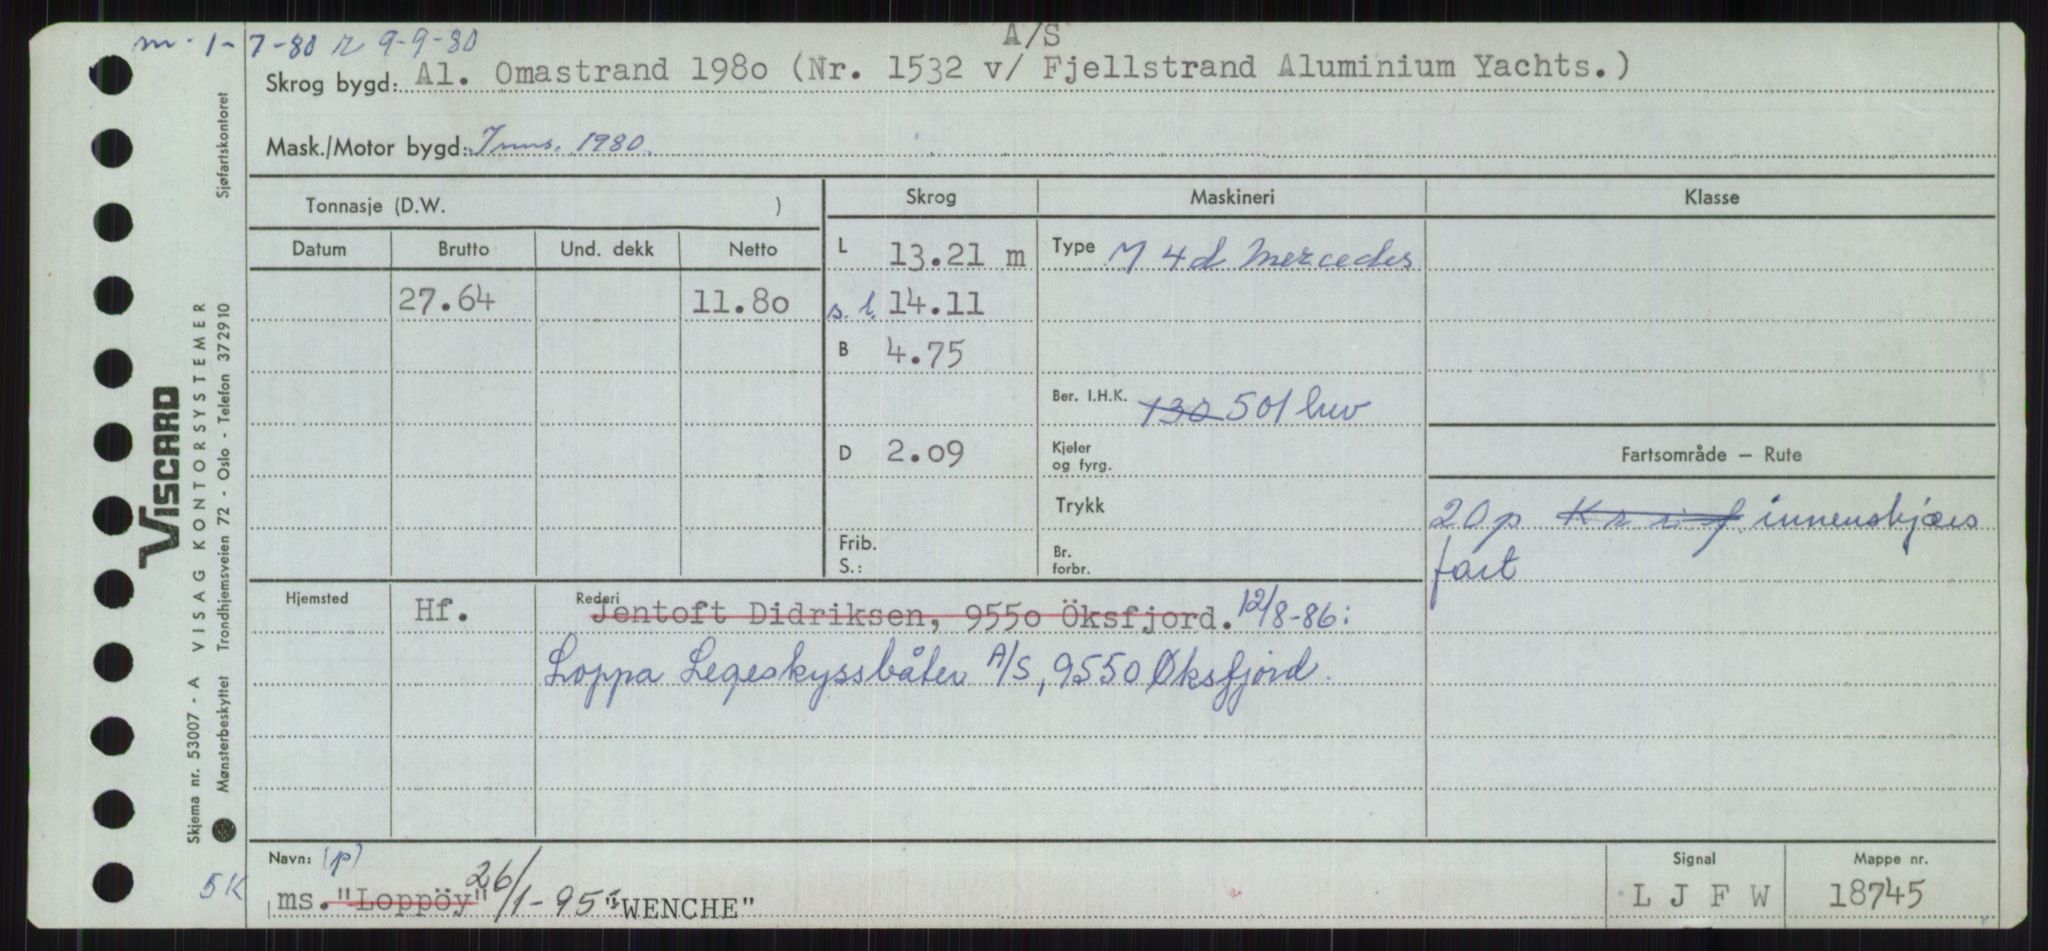 m - 1 - 7-80 r 9-9-80
A/S
Skrog bygd: Al. Omastrand 1980 (Nr. 1532 v/ Fjellstrand Aluminium Yachts.)
Mask./Motor bygd: Inns. 1980.
Tonnasje (D.W. )
Skrog
Maskineri
Klasse
Datum
Brutto
Und. dekk
Netto
L 13.21 m
Type M 4d Mercedes
27.64
11.80
s. l. 14.11
B 4.75
Ber. I.H.K. 130 501 hw
D 2.09
Kjeler
og fyrg.
Fartsområde – Rute
Trykk
20p K r i f. innenskjærs
fart
Frib.
S.:
Br.
forbr.
Hjemsted
Hf.
Rederi
Jentoft Didriksen, 9550 Öksfjord. 12/8-86:
Loppa Legeskyssbåter A/S, 9550 Øksfjord.
Navn: (p)
Signal
Mappe nr.
5K
ms. "Loppöy" 26/1-95 "WENCHE"
L J F W
18745
VISCARD
Skjema nr. 53007 - A VISAG KONTORSYSTEMER
Mønsterbeskyttet Trondhjemsveien 72 - Oslo - Telefon 372910
Sjøfartskontoret